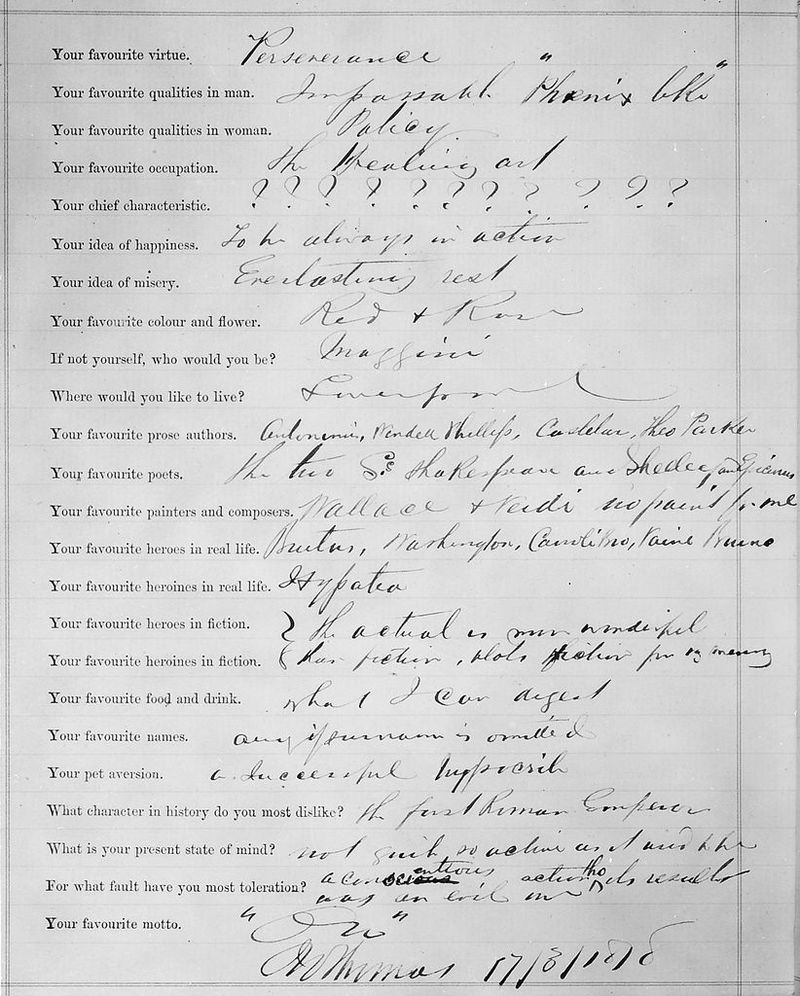 Your favourite virtue. Perseverance " "
Your favourite qualities in man. Impassable Phœnix like
Your favourite qualities in woman. Policy.
Your favourite occupation. the Healing art
Your chief characteristic. ? ? ? ? ? ? ? ? ? ? ?
Your idea of happiness. To be always in action
Your idea of misery. Everlasting rest
Your favourite colour and flower. Red & Rose
If not yourself, who would you be? Mazzini
Where would you like to live? Liverpool
Your favourite prose authors. Antoninus, Wendell Phillips, Castelar, Theo Parker
Your favourite poets. The two S's Shakespeare and Shelley
Your favourite painters and composers. Wallace & Verdi no paint for me
Your favourite heroes in real life. Brutus, Washington, Paine Bruno
Your favourite heroines in real life. Hypatia
Your favourite heroes in fiction. the actual is more wonderful
Your favourite heroines in fiction. than fiction, fiction for my memory
Your favourite food and drink. what I can digest
Your favourite names. any if surname is omitted
Your pet aversion. a successful hypocrite
What character in history do you most dislike? the first Roman Emperor
What is your present state of mind? not quite so active as it used to be
For what fault have you most toleration? a conscientious action tho its results
was an evil one
Your favourite motto.
Thomas 17/8/1878